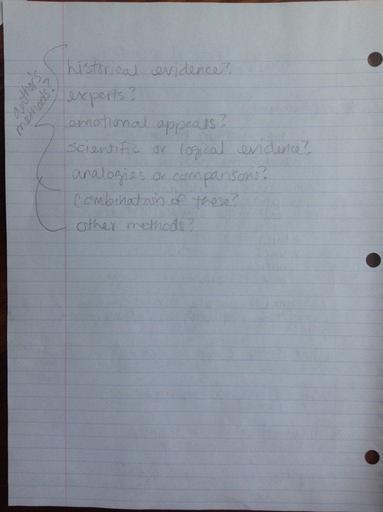 author's
methods?
historical evidence?
experts?
emotional appeals?
scientific or logical evidence?
analogies or comparisons?
combination of these?
other methods?